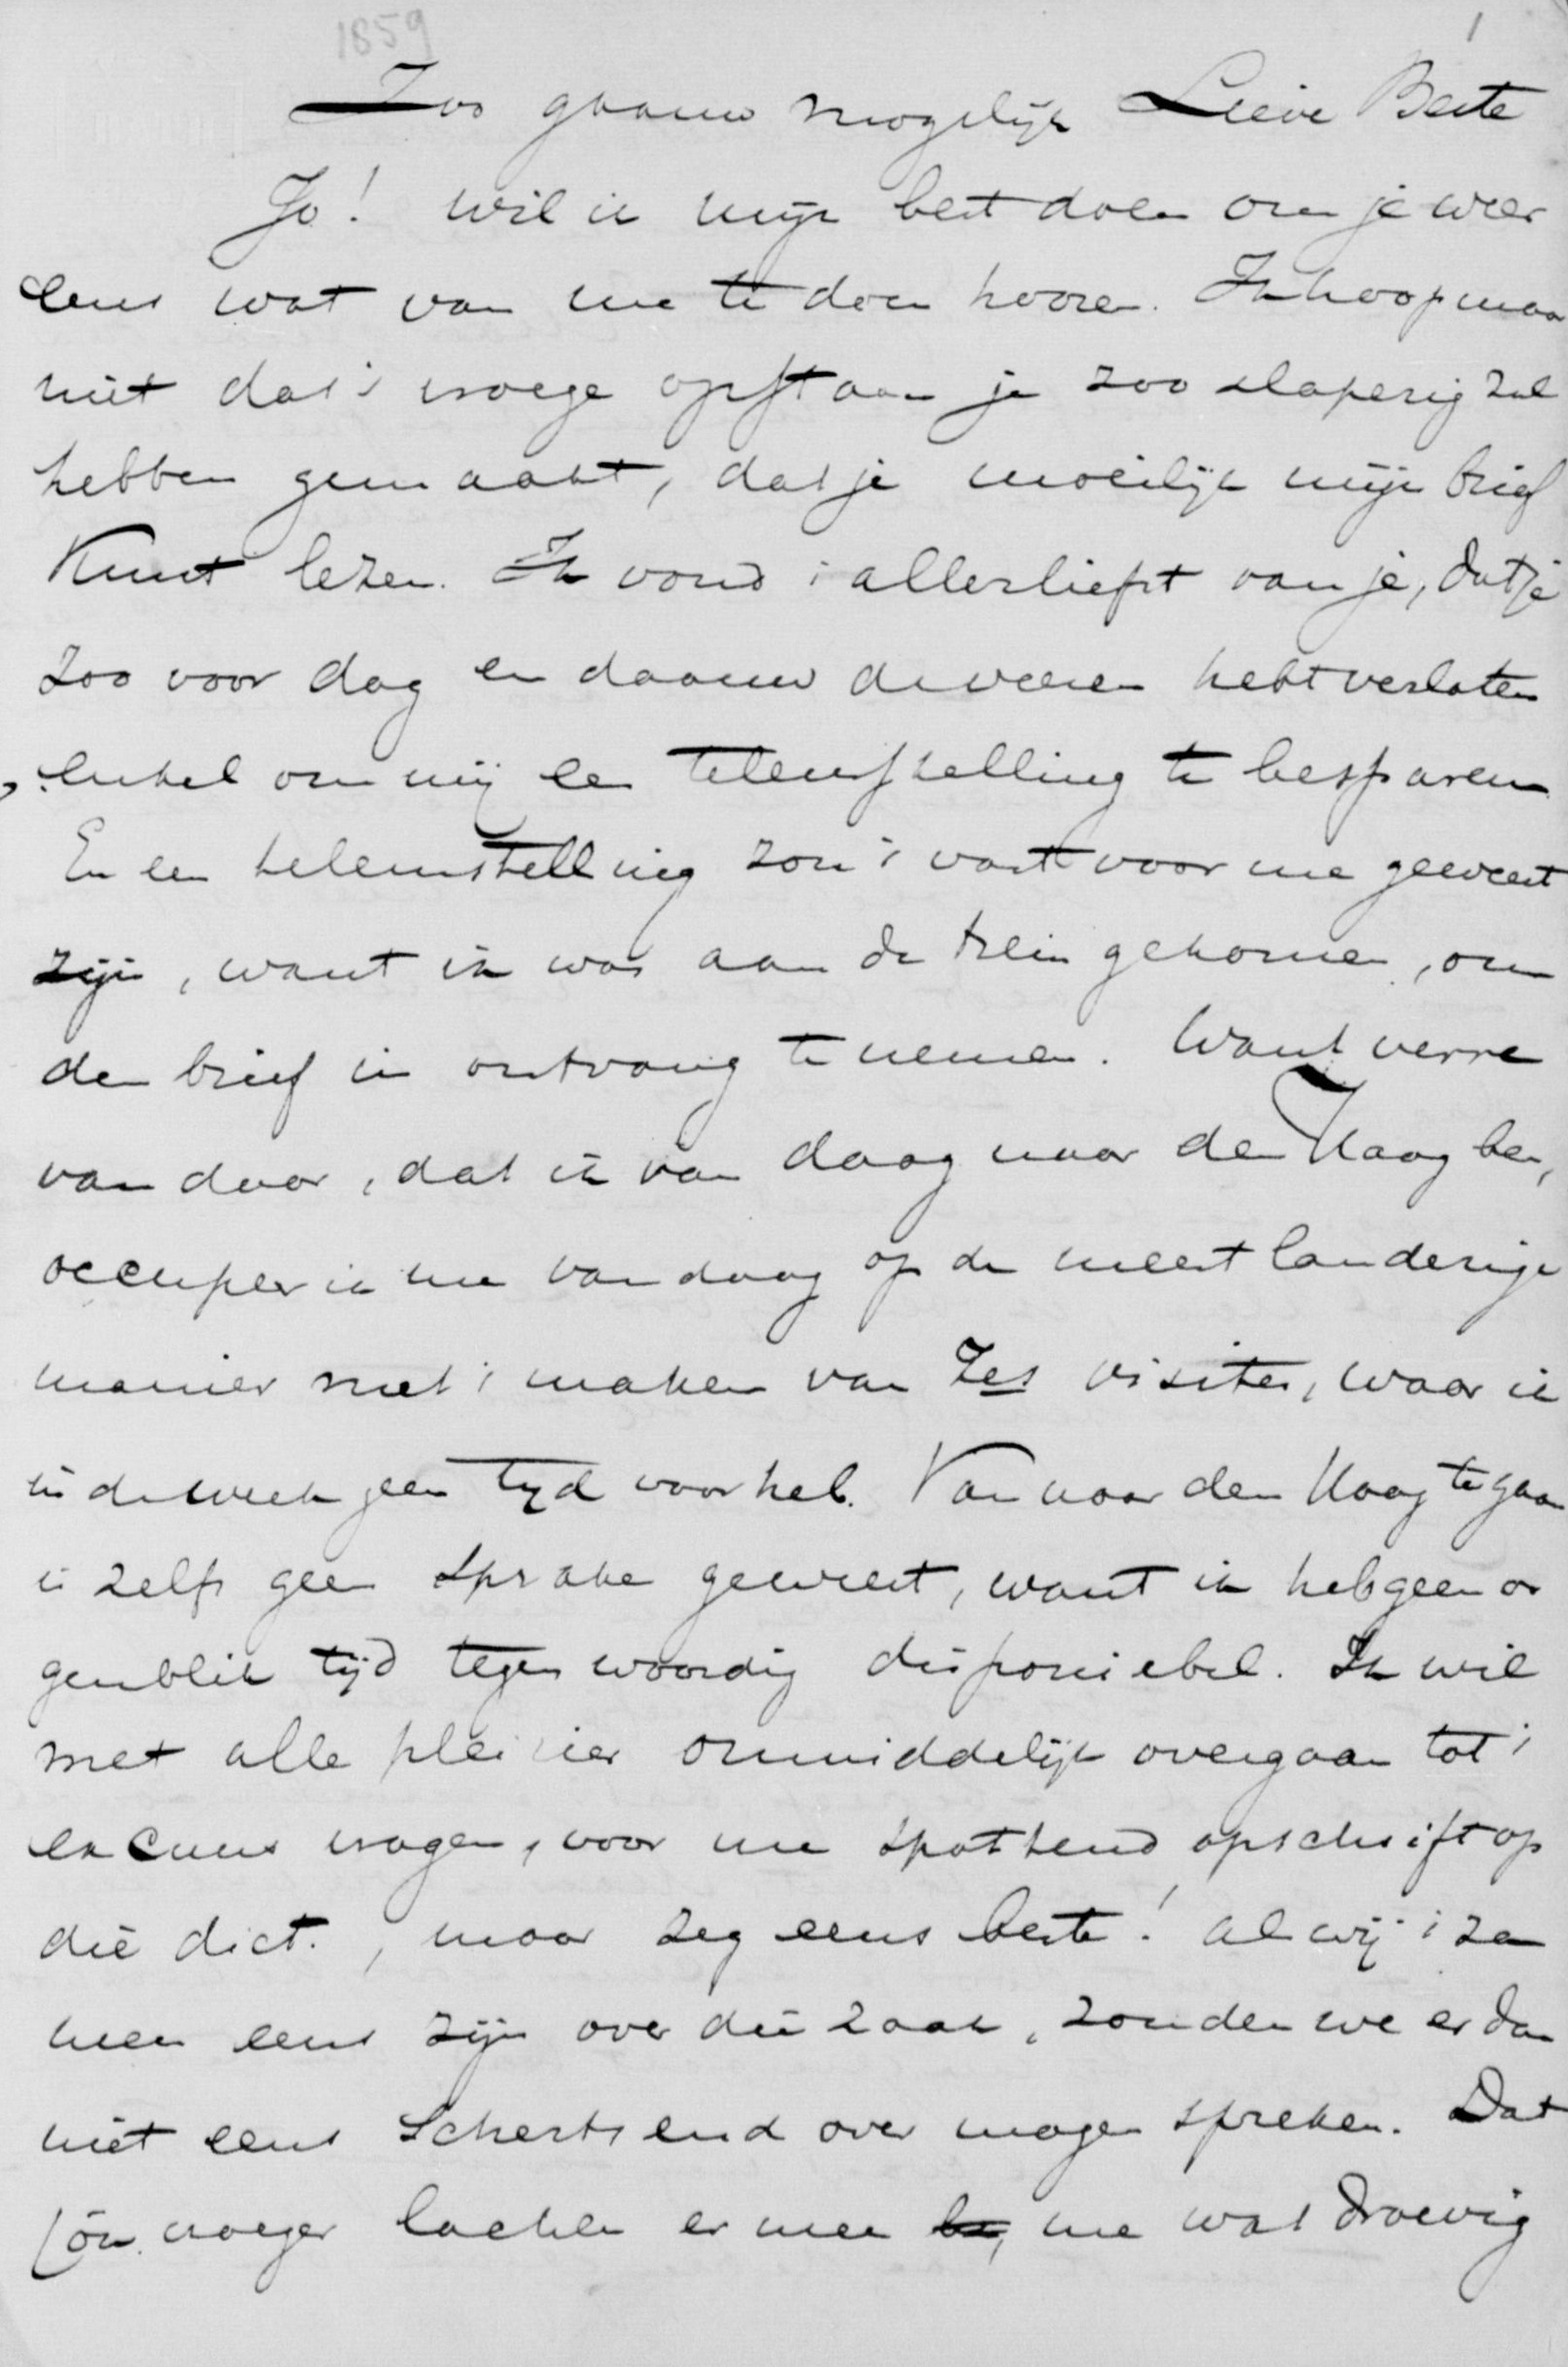 1859
1
Zoo gaauw mogelijk Lieve Beste
Jo! wil ik mijn best doen om je weer
eens wat van me te doen hooren. Ik hoop maar
niet dat 't vroege opstaan je zoo slaperig zal
hebben gemaakt, dat je moeilijk mijn brief
kunt lezen. Ik vond 't allerliefst van je, dat je
zoo voor dag en daauw de veeren hebt verlaten
, enkel om mij een teleurstelling te besparen
En een teleurstelling zou 't vast voor me geweest
zijn, want ik was aan de trein gekomen, om
den brief in ontvang te nemen. Want verre
van daar, dat ik van daag naar den Haag ben,
occupeer ik me van daag op de meest landerige
manier met 't maken van zes visites, waar ik
in de week geen tyd voor heb. Van naar den Haag te gaan
is zelfs geen sprake geweest, want ik heb geen oo
genblik tijd tegenwoordig disponiebel. Ik wil
met alle pleizier onmiddelijk overgaan tot 't
excuus vragen, voor me spottend opschrift op
die dict., maar zeg eens beste! al wij 't za
meen eens zijn over die zaak, zouden we er dan
niet eens schertsend over mogen spreken. Dat
vroeger lachen er mee me wat droevig